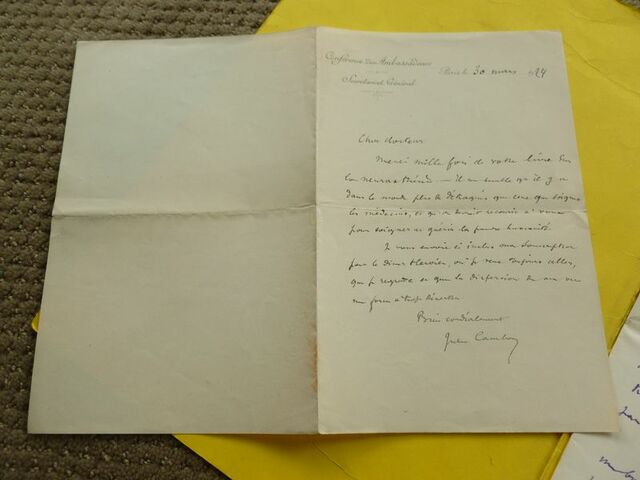 Conférence des Ambassadeurs
Secrétariat Général
Paris le 30 mars 1924
Cher docteur
Merci mille fois de votre livre sur
la neurasthénie — il me semble qu'il y a
dans le monde plus de détraqués que ceux que soignent
les médecins, et qu'on devrait recourir à vous
pour soigner et guérir la pauvre humanité.
Je vous envoie ci inclus ma souscription
pour le diner Hervieu, où je veux toujours aller,
que je regrette et que la dispersion de ma vie
me force à trop déserter
Bien cordialement
Jules Cambon